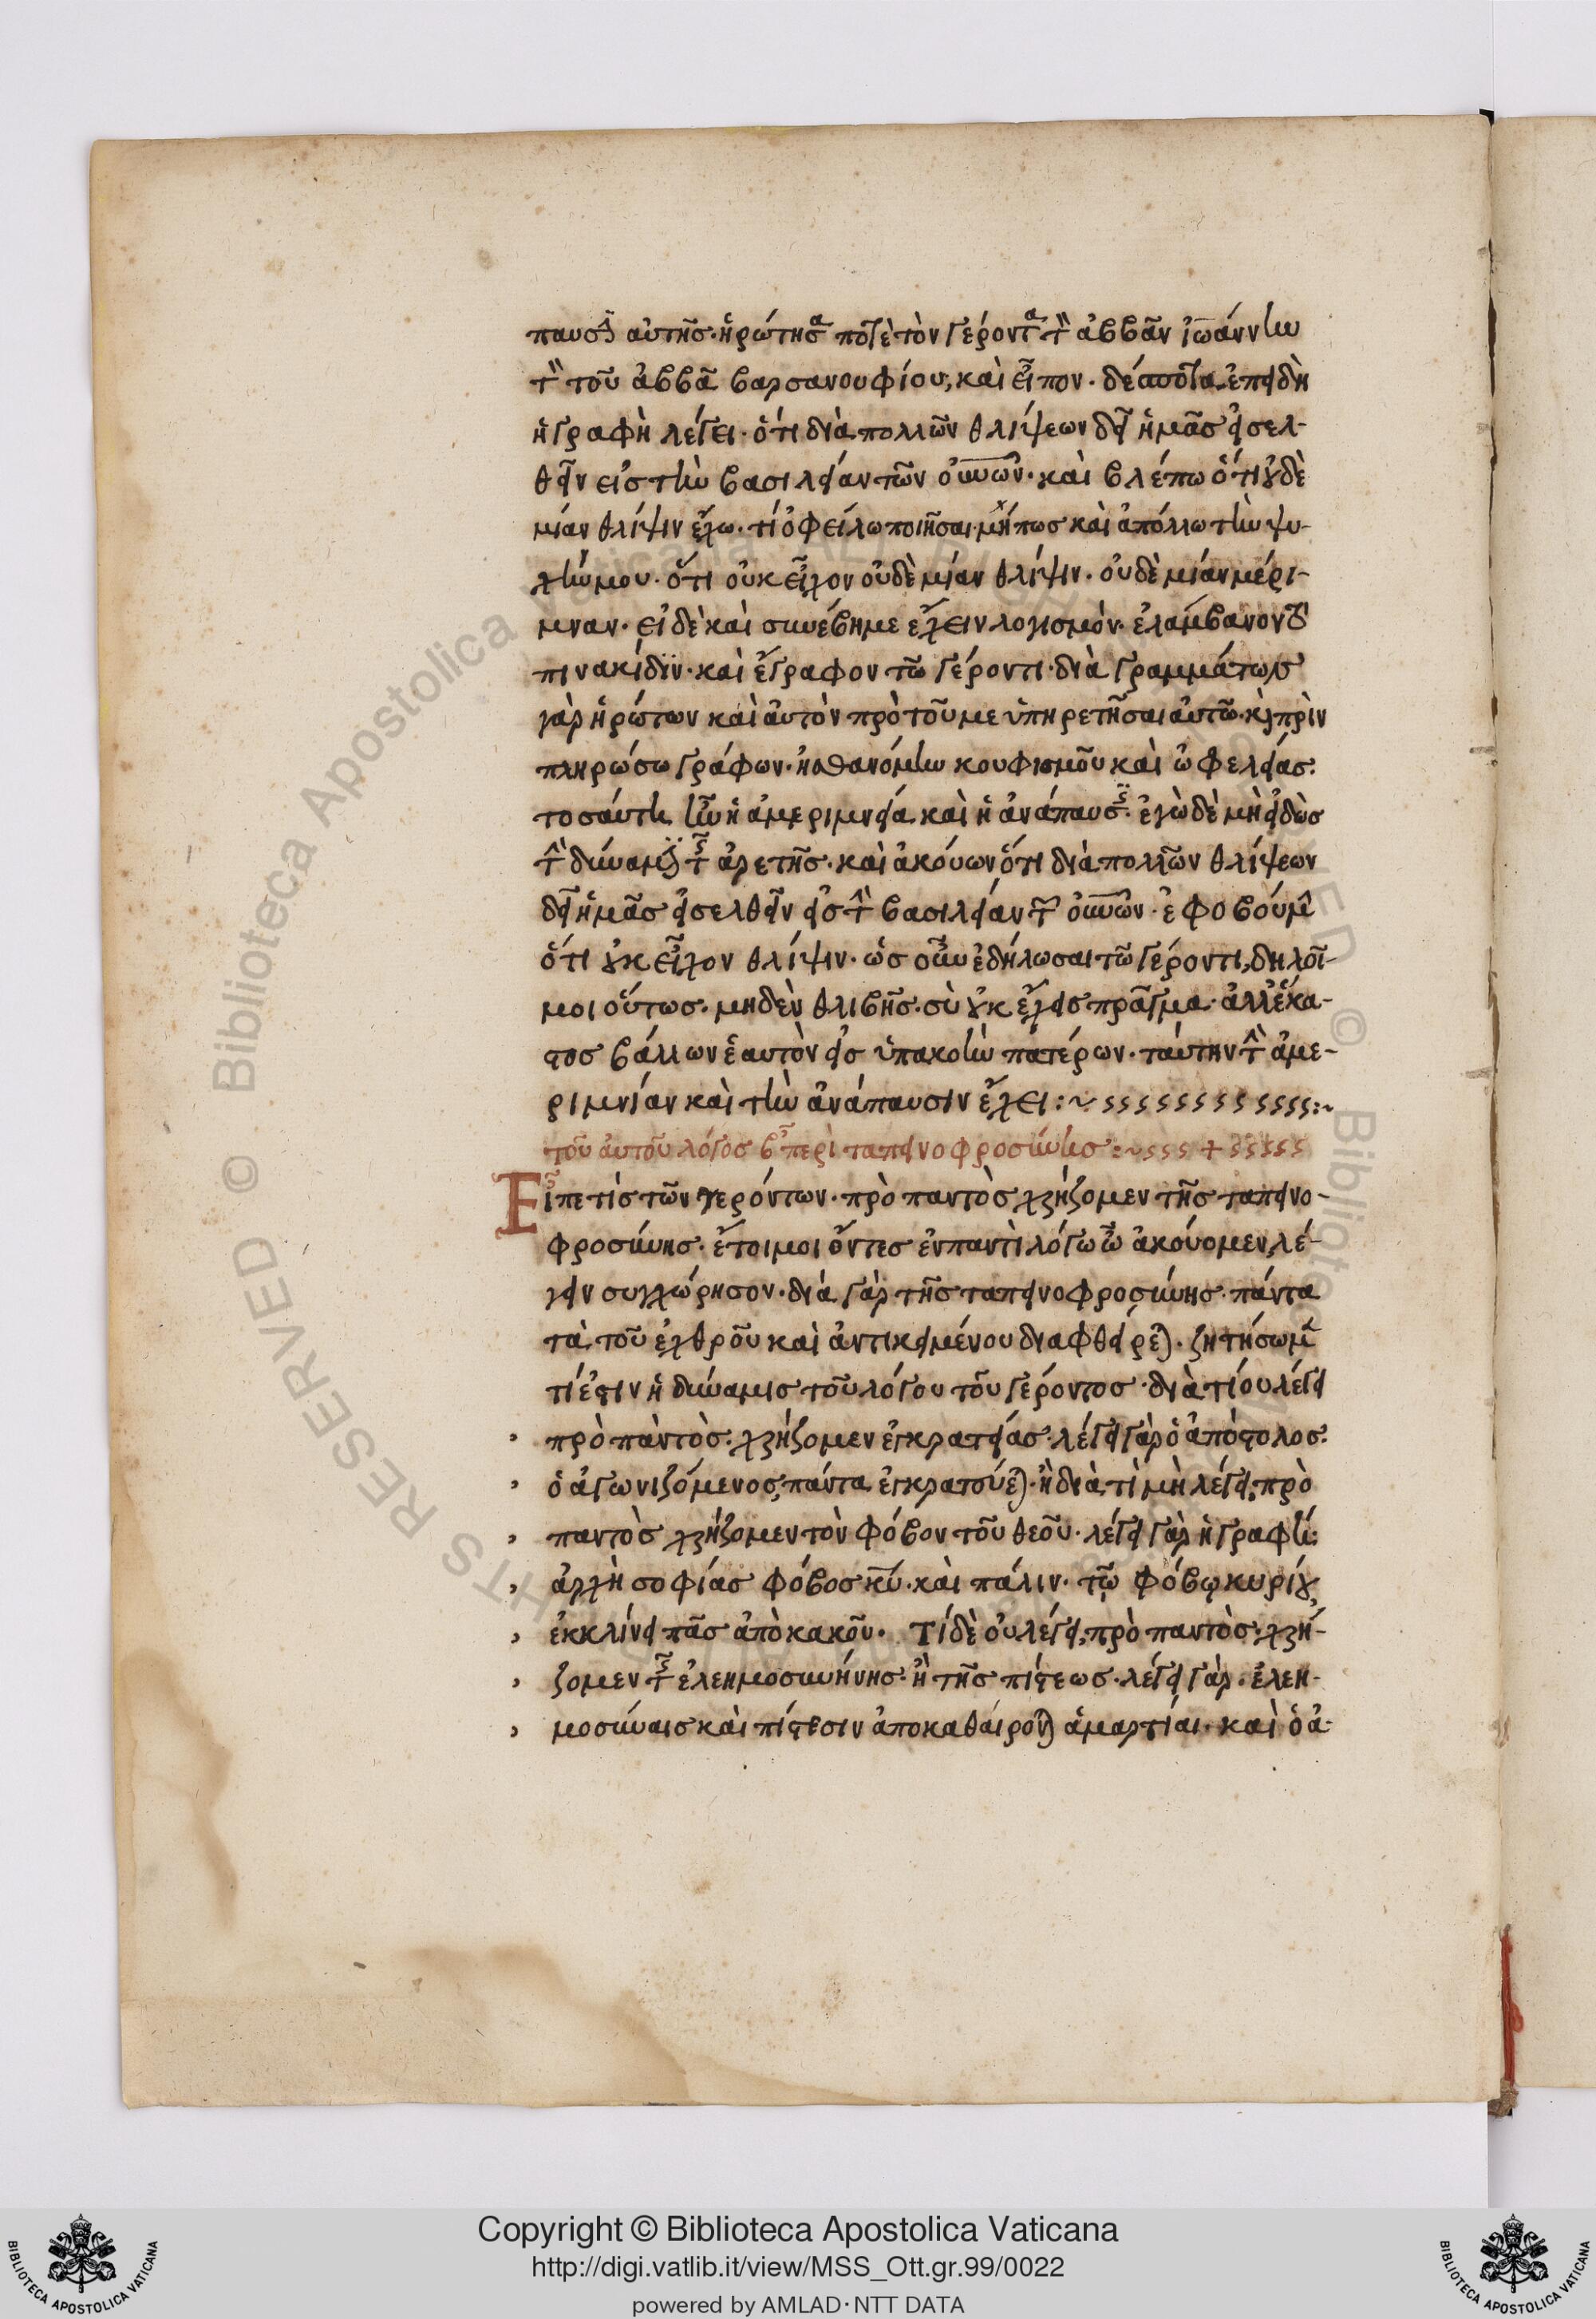 παυσιν αὐτῆσ· ἠρώτησα ποτὲ τὸν γέροντα τὸν ἀββᾶν ἰωάννην
τὸν τοῦ ἀββᾶ βαρσανουφίου, καὶ εἶπον· δέσποτα ἐπειδὴ
ἡ γραφὴ λέγει· ὅτι διὰ πολλῶν θλίψεων δεῖ ἡμᾶσ εἰσελ-
θεῖν εἰσ τὴν βασιλείαν τῶν οὐνῶν· καὶ βλέπω ὅτι οὐδὲ
μίαν θλίψιν ἔχω· τί ὀφείλω ποιῆσαι· μήπωσ καὶ ἀπόλλω τὴν ψυ-
χήν μου· ὅτι οὐκ εἶχον οὐδὲ μίαν θλίψιν· οὐδὲ μίαν μέρι-
μναν· εἰ δὲ καὶ συνέβη με ἔχειν λογισμὸν· ἐλάμβανον τὸ
πινακίδιν· καὶ ἔγραφον τῶ γέροντι· διὰ γραμμάτων
γὰρ ἠρώτων καὶ αὐτὸν πρὸ τοῦ με ὑπηρετῆσαι αὐτῶ· καὶ πρὶν
πληρώσω γράφων· ἠσθανόμην κουφισμοῦ καὶ ὠφελείασ·
τοσάυτη ἦν ἡ ἀμεριμνεία καὶ ἡ ἀνάπαυσισ· ἐγὼ δὲ μὴ εἰδὼσ
τὴν δύναμιν τῆσ ἀρετῆσ· καὶ ἀκούων ὅτι διὰ πολλῶν θλίψεων
δεῖ ἡμᾶσ εἰσελθεῖν εἰσ τὴν βασιλείαν τῶν οὐνῶν· ἐφοβούμην
ὅτι οὐκ εἶχον θλίψιν· ὡσ οὖν ἐδήλωσα τῶ γέροντι, δηλοῖ
μοι οὕτωσ· μηδὲν θλιβῆσ· σὺ οὐκ ἔχεισ πρᾶγμα· ἀλλ' ἕκα-
στοσ βάλλων ἑαυτὸν εἰσ ὑπακοὴν πατέρων· ταύτην τὴν ἀμε-
ριμνίαν καὶ τὴν ἀνάπαυσιν ἔχει:~
τοῦ αὐτοῦ λόγοσ β περὶ ταπεινοφροσύνησ:~ +
Εἶπε τίσ τῶν γερόντων· πρὸ παντὸσ χρήζομεν τῆσ ταπεινο-
φροσύνησ· ἕτοιμοι ὄντεσ ἐν παντὶ λόγω ὧ ἀκούομεν, λέ-
γειν συγχώρησον· διά γὰρ τῆσ ταπεινοφροσύνησ πάντα
τὰ τοῦ ἐχθροῦ καὶ ἀντικειμένου διαφθείρεται· ζητήσωμεν
τί ἐστιν ἡ δύναμισ τοῦ λόγου τοῦ γέροντοσ· διὰ τί οὐ λέγει
πρὸ πὰντὸσ· χρήζομεν ἐγκρατείασ· λέγει γὰρ ὁ ἀπόστολοσ·
ὁ ἀγωνιζόμενοσ, πάντα ἐγκρατεύεται· ἢ διὰ τὶ μὴ λέγει, πρὸ
παντὸσ χρήζομεν τὸν φόβον τοῦ θεοῦ· λέγει γὰρ ἡ γραφή:
ἀρχὴ σοφίασ φόβοσ κυ· καὶ πάλιν· τῷ φόβῳ κυρίου,
ἐκκλίνει πᾶσ ἀπὸ κακοῦ· Τί δὲ οὐ λέγει, πρὸ παντὸσ, χρή-
ζομεν τῆσ ἐλεημοσυνήνησ· ἢ τῆσ πίστεωσ· λέγει γὰρ· ἐλεη-
μοσύναισ καὶ πίστεσιν ἀποκαθάιρονται ἁμαρτίαι· καὶ ὁ ἀ-
Copyright © Biblioteca Apostolica Vaticana
http://digi.vatlib.it/view/MSS_Ott.gr.99/0022
powered by AMLAD·NTT DATA